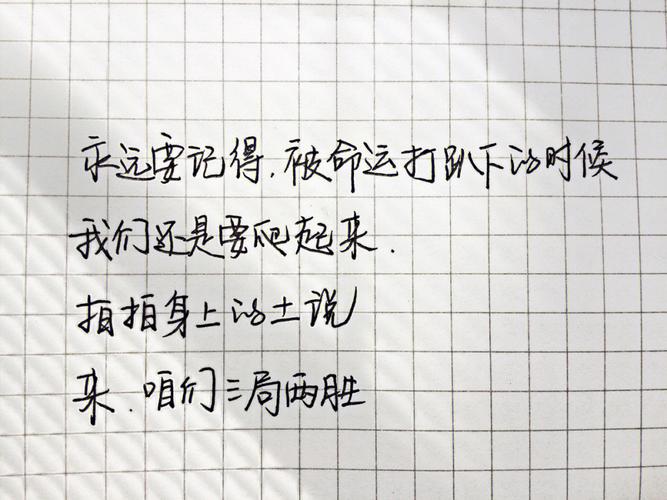 永远要记得.被命运打趴下的时候
我们还是要爬起来.
拍拍身上的土说
来.咱们三局两胜